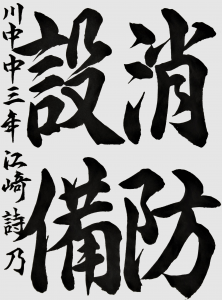 消防
設備
川中中三年 江崎詩乃